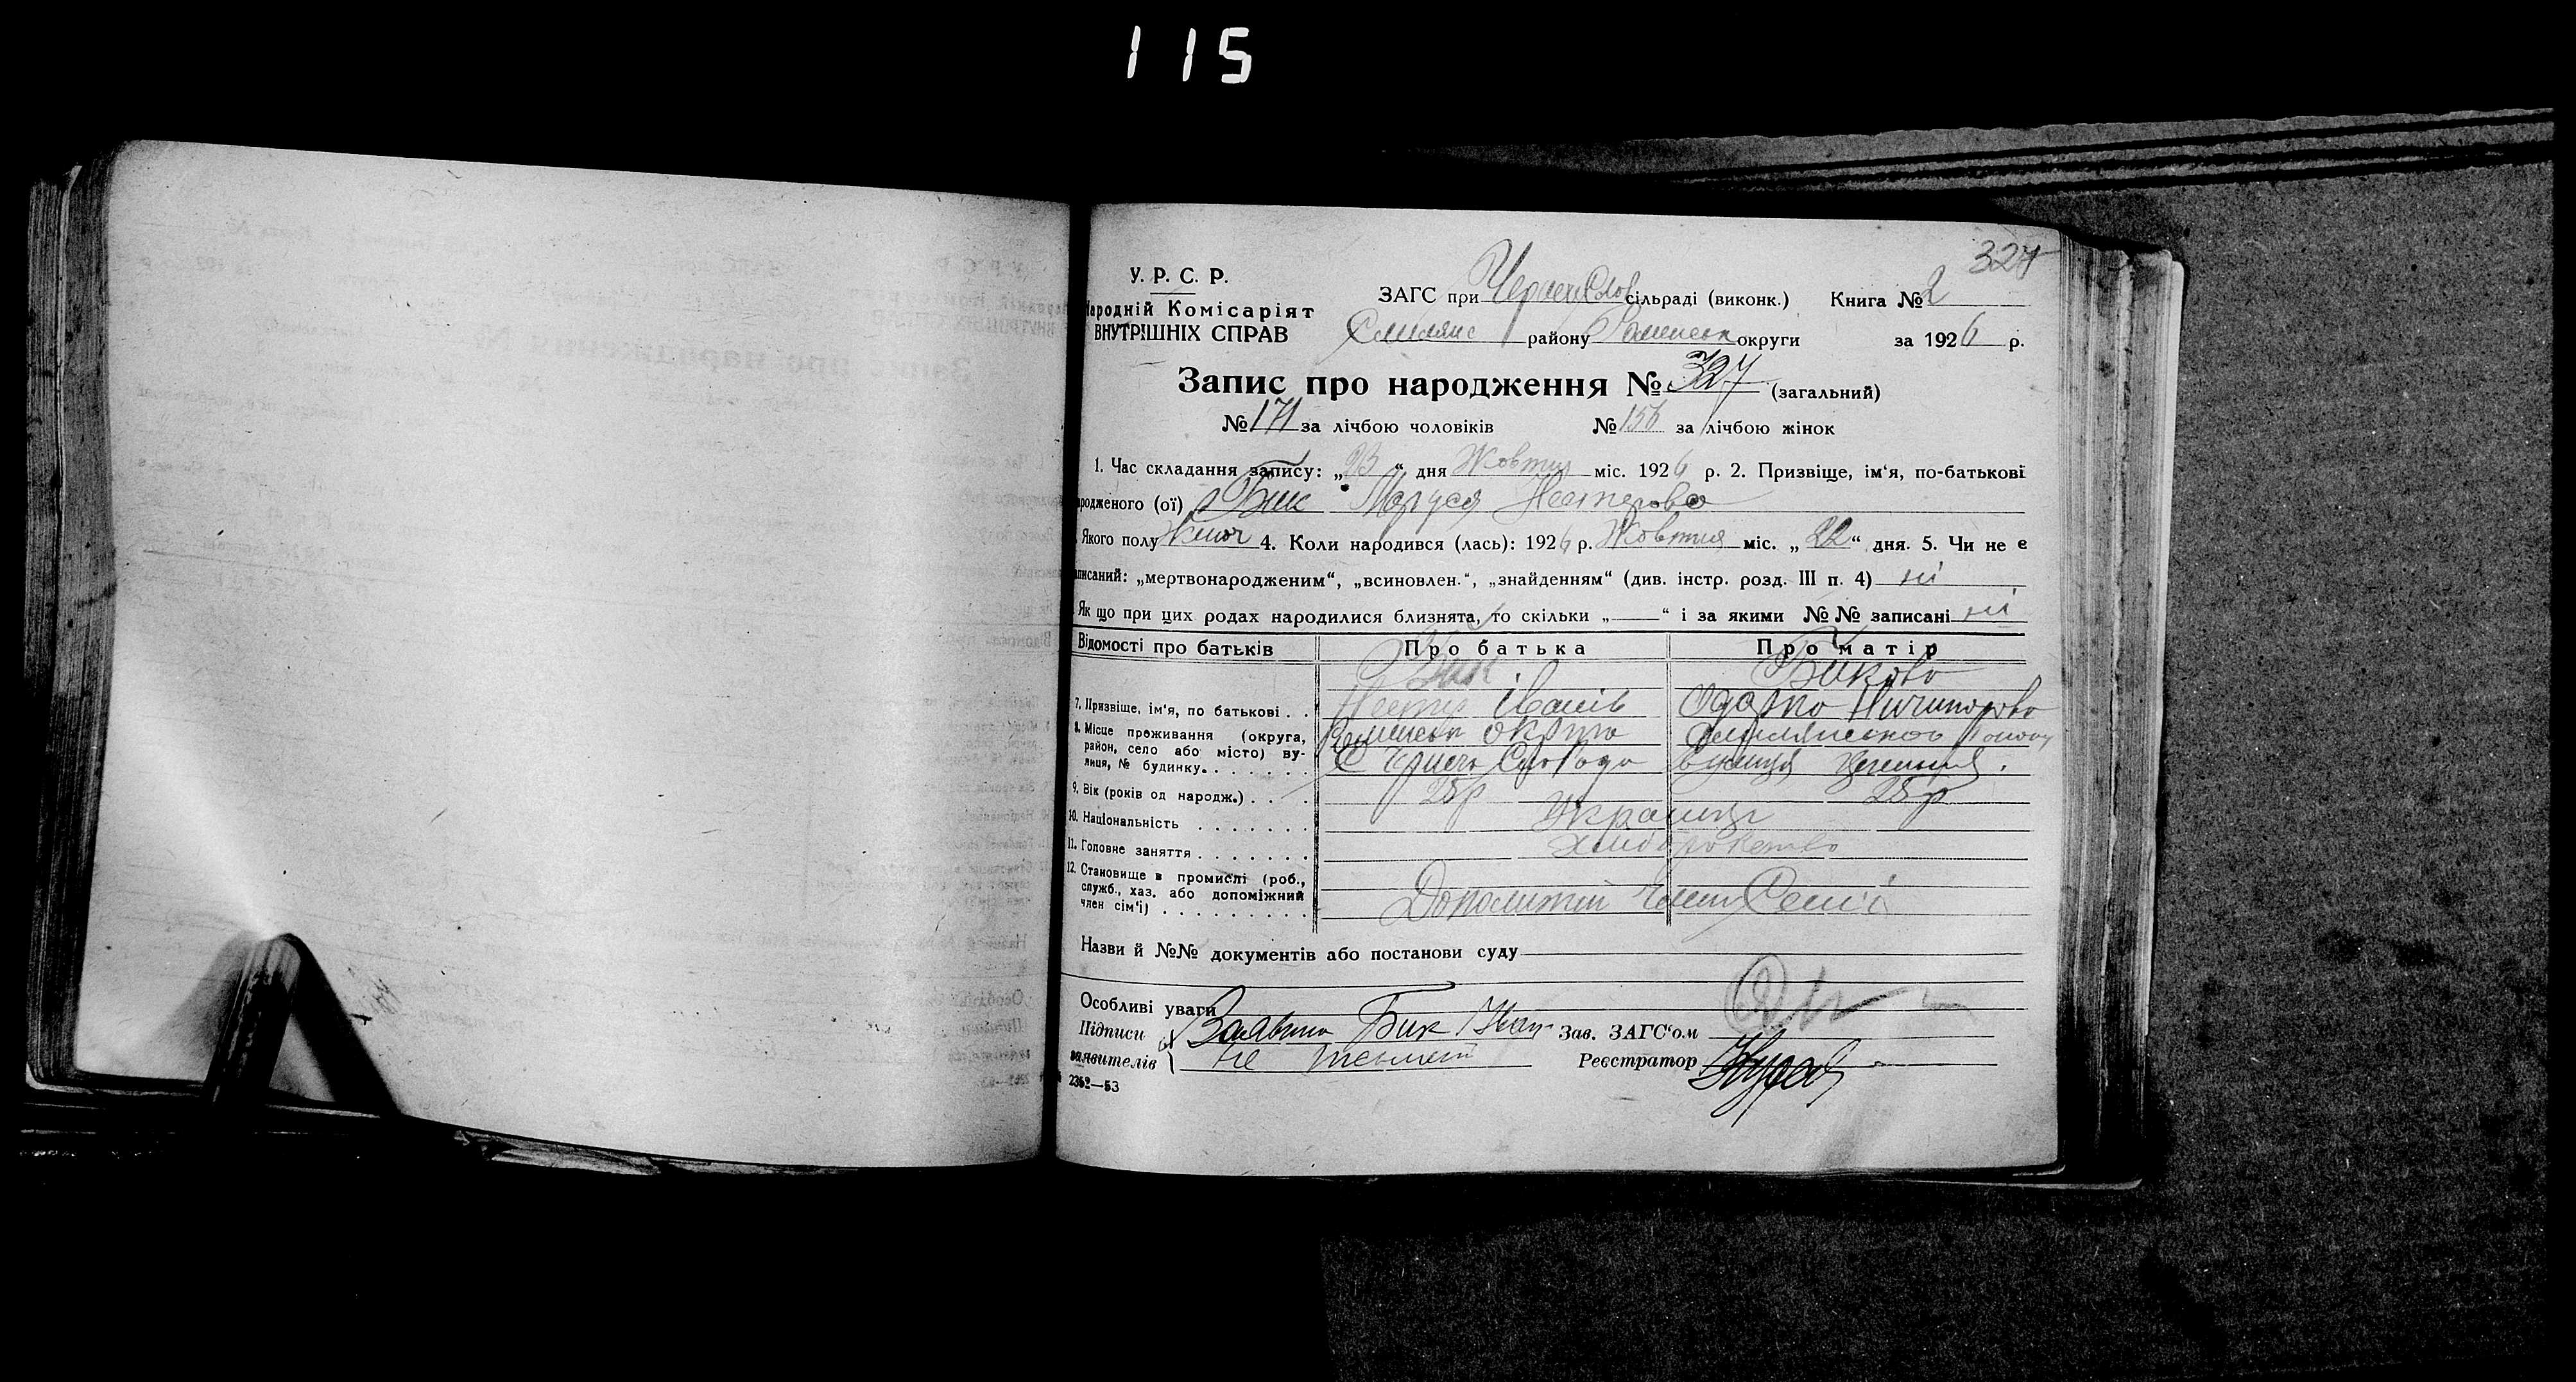 115
327
У. Р. С. Р.
Народній Комісаріят
ВНУТРІШНІХ СПРАВ
ЗАГС при сільраді (виконк.) Книга № 2
району округи за 1926 р.
Запис про народження № 327 (загальний)
№ 171 за лічбою чоловіків № 156 за лічбою жінок
1. Час складання запису: „23“ дня Жовтня міс. 1926 р. 2. Призвіще, ім‘я, по-батькові
родженого (ої) Бик Маруся Нестерова
Якого полу Жіноч 4. Коли народився (лась): 1926 р. Жовтня міс. „22“ дня. 5. Чи не є
аписаний: „мертвонародженим“, „всиновлен.“, „знайденням“ (див. інстр. розд. III п. 4) ні
Як що при цих родах народилися близнята, то скільки „——“ і за якими №№ записані ні
Відомості про батьків Про батька Про матір
Бик Бикова
7. Призвіще, ім‘я, по батькові . . Нестір Іванів Одарка Ничипорова
8. Місце проживання (округа,
район, село або місто) ву-
лиця, № будинку. . . . . . .
округа
С Слобода вулиця
9. Вік (років од народж.) . . . 28 р 28 р
10. Національність . . . . . . . Українці
11. Головне заняття . . . . . . . Хліборобство
12. Становище в промислі (роб.,
служб., хаз. або допоміжний
член сім‘ї) . . . . . . . . . .
члени Семії
Назви й №№ документів або постанови суду
Особливі уваги
Підписи Бик Зав. ЗАГС‘ом
заявителів не Реєстратор
2352—53